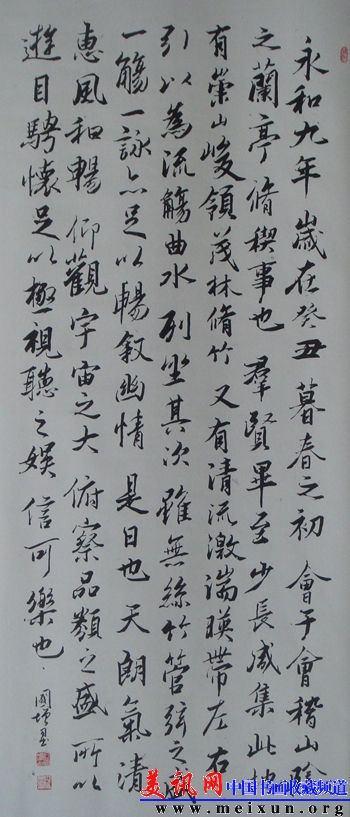 永和九年歲在癸丑暮春之初會于會稽山陰
之蘭亭脩稧事也群賢畢至少長咸集此地
有崇山峻領茂林脩竹又有清流激湍暎帶左右
引以為流觴曲水列坐其次雖無絲竹管弦之盛
一觴一詠亦足以暢敘幽情是日也天朗氣清
惠風和暢仰觀宇宙之大俯察品類之盛所以
遊目騁懷足以極視聽之娛信可樂也
美讯网 中国书画收藏频道
www.meixun.org